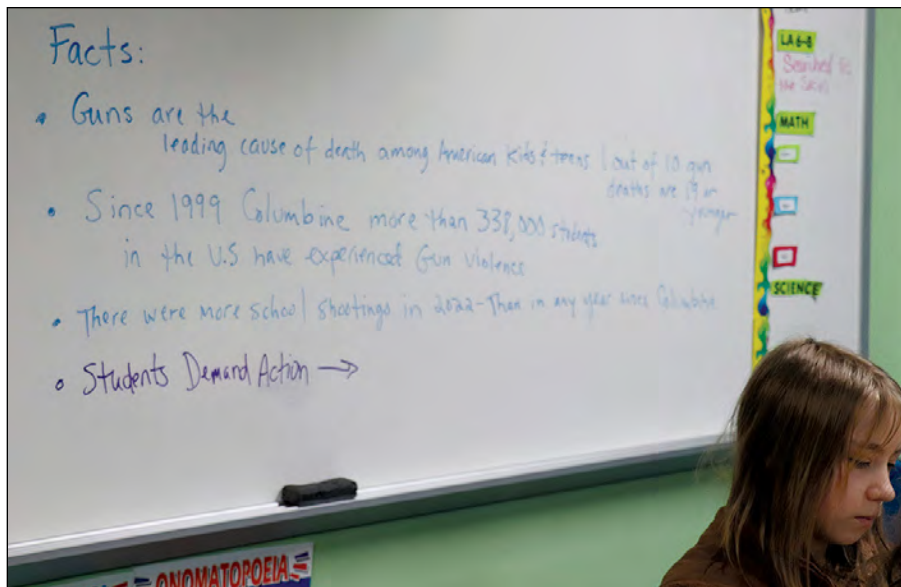 Facts:
• Guns are the
leading cause of death among American kids & teens 1 out of 10 gun
deaths are 19 or
younger
• Since 1999 Columbine more than 338,000 students
in the U.S have experienced Gun Violence
• There were more school shootings in 2022-Than in any year since Columbine
• Students Demand Action →
LA 6-8
Searched for
the
MATH
SCIENCE
ONOMATOPOEIA